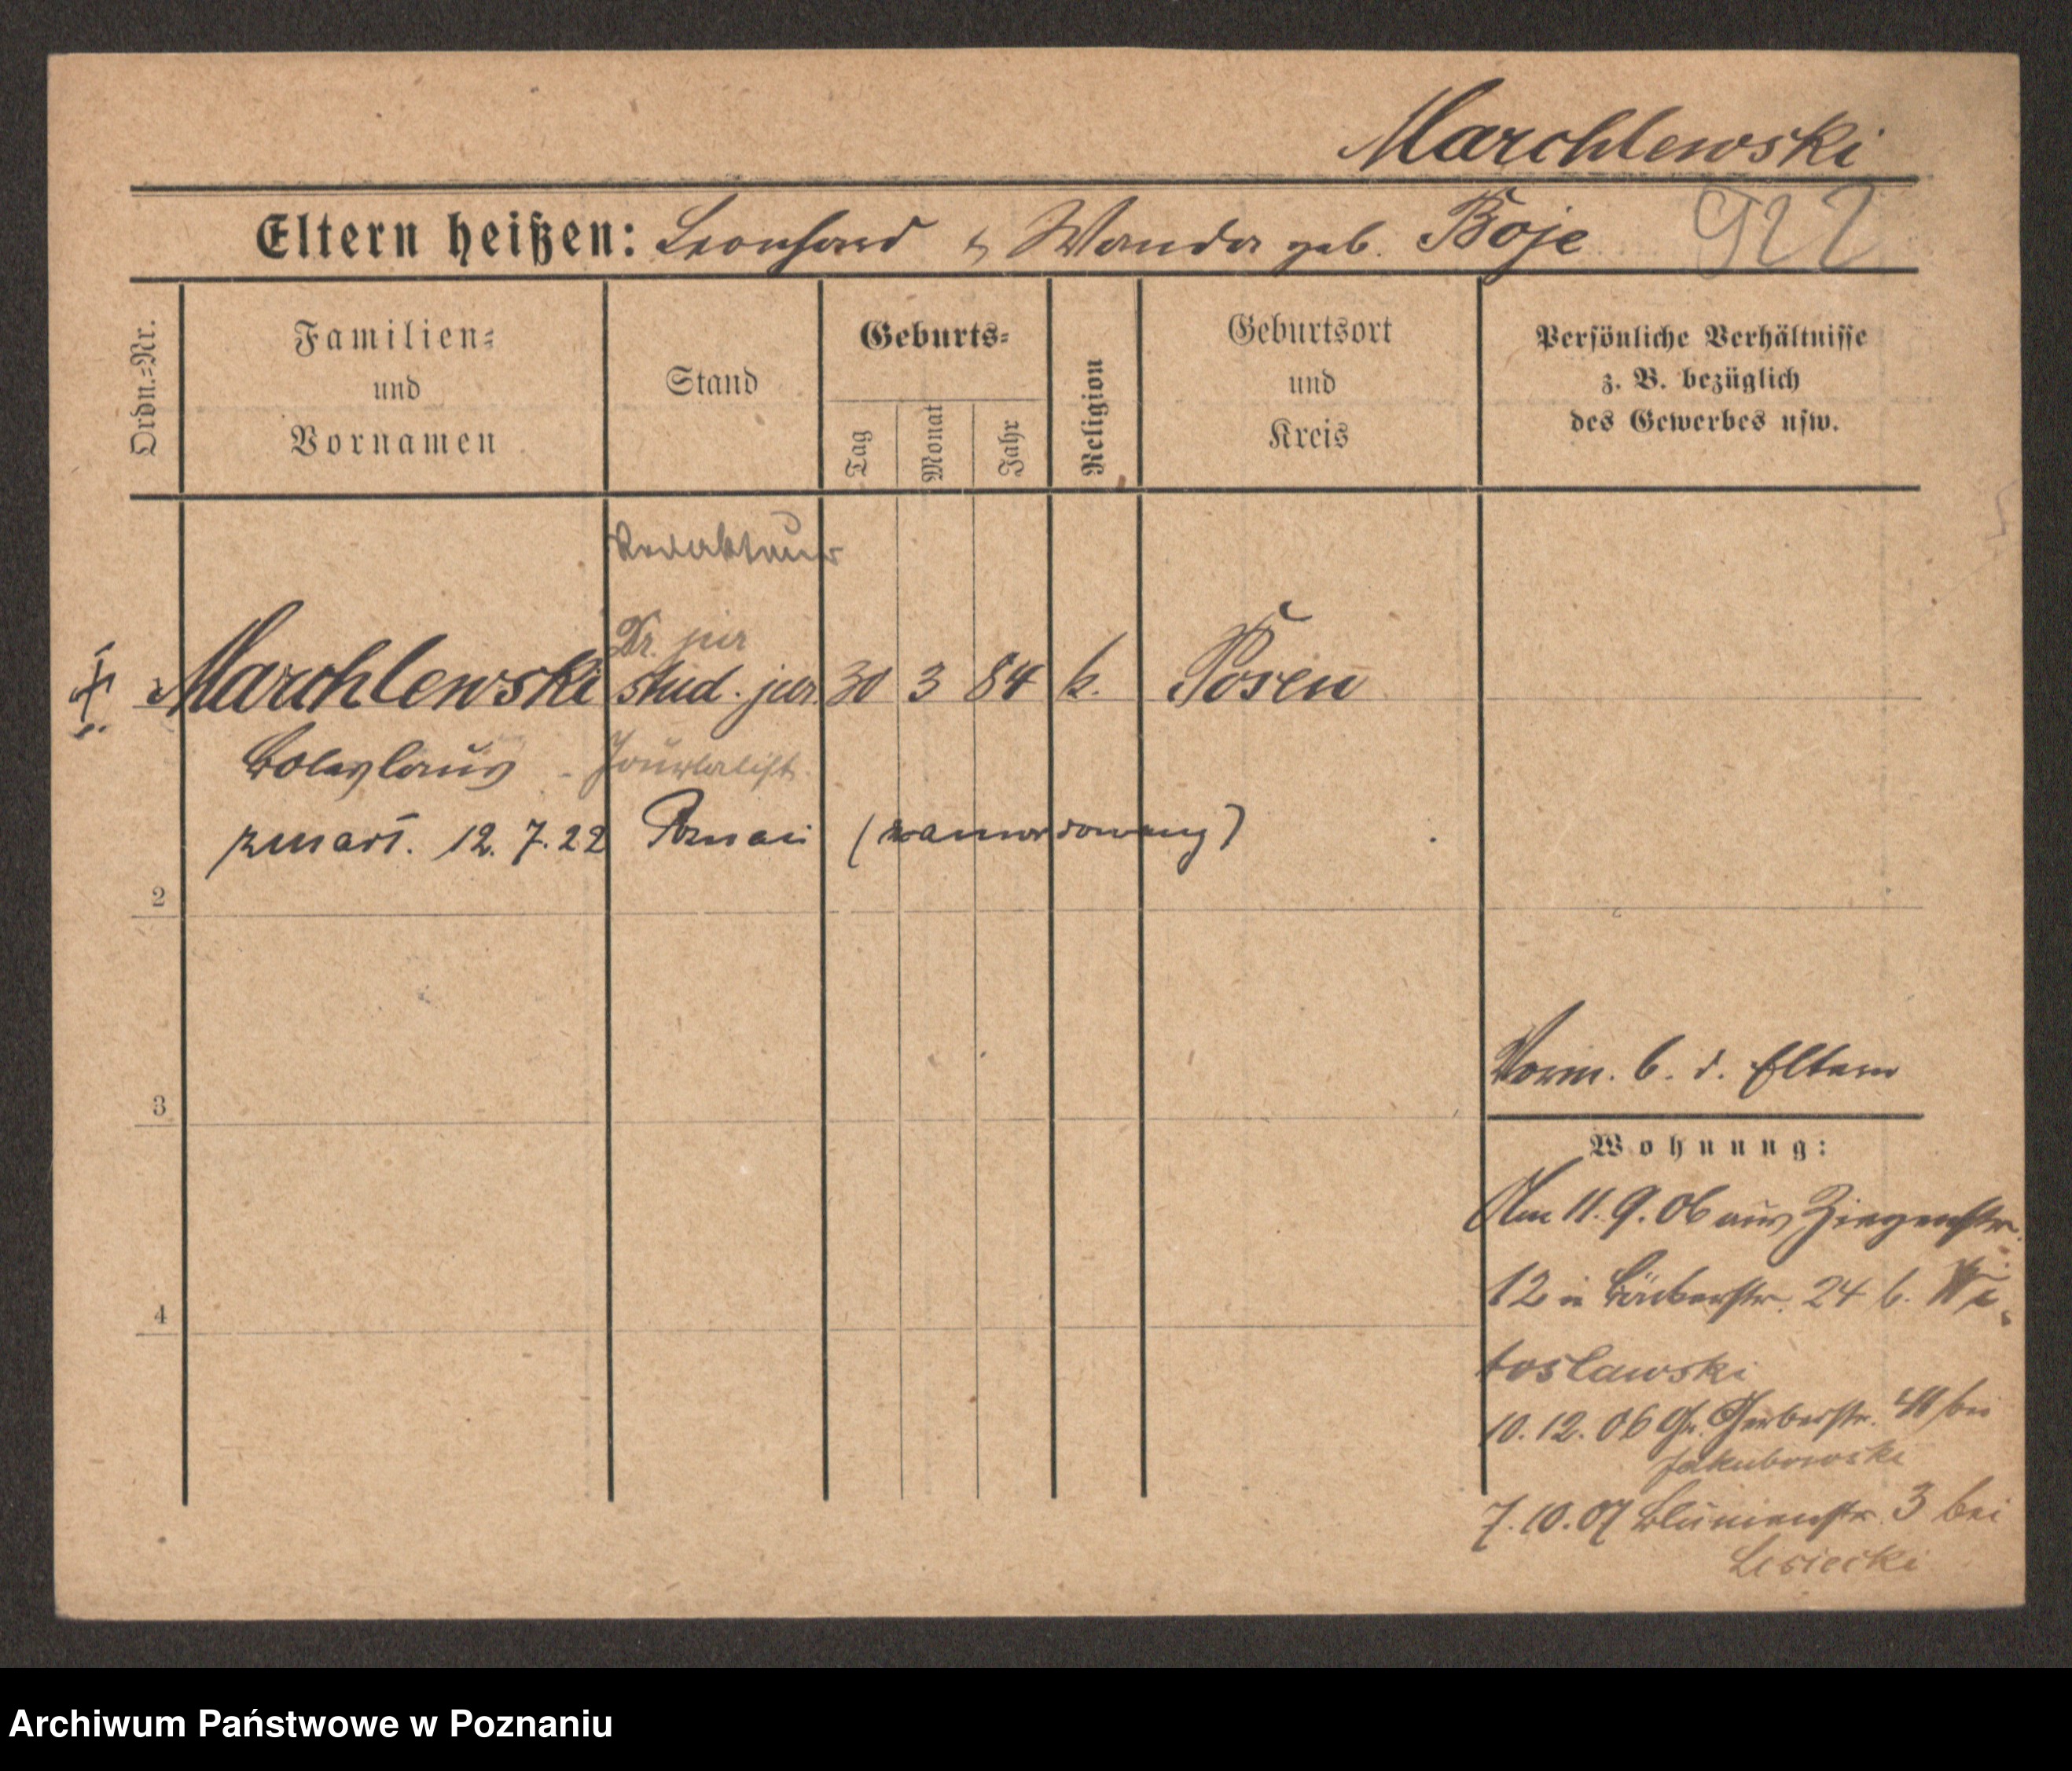 Marchlewski
Eltern heißen: Leonhard & Wanda geb. Boje
922
Ordn.=Nr.
Familien=
und
Vornamen
Stand
Geburts=
Tag
Monat
Jahr
Religion
Geburtsort
und
Kreis
Persönliche Verhältnisse
z. B. bezüglich
des Gewerbes usw.
Redakteur
Dr. jur
Marchlewski stud. jur. 30 3 84 k. Posen
Boleslaus - Journalist
zmarł. 12.7.22 Poznań (zamordowany)
2
3
4
Vorm. b. d. Eltern
Wohnung:
Am 11.9.06 aus Ziegenstr.
12 in Bäckerstr. 24 b. Wi-
toslawski
10.12.06 Gr. Gerberstr. 41 bei
Jakubowski
7.10.07 Blumenstr. 3 bei
Lisiecki
Archiwum Państwowe w Poznaniu